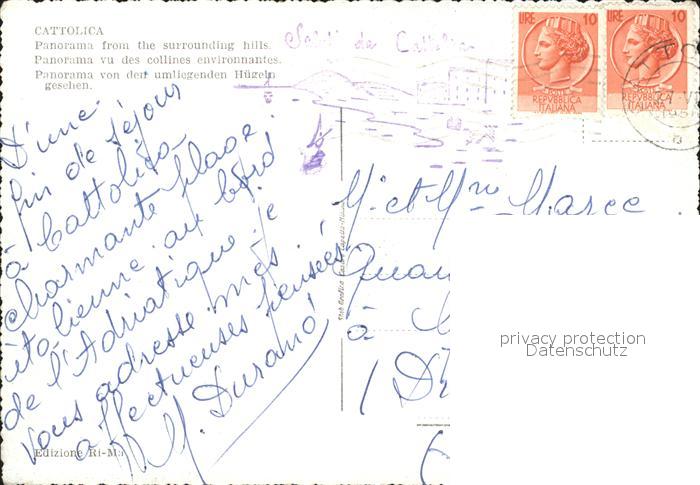 CATTOLICA
Panorama from the surrounding hills.
Panorama vu des collines environnantes.
Panorama von den umliegenden Hügeln
gesehen.
Saluti da Cattolica
LIRE 10
REPVBBLICA
ITALIANA
LIRE 10
POSTE
REPVBBLICA
ITALIANA
D'une
fin de séjour
à Cattolica
charmante plage
italienne au bord
de l'Adriatique je
vous adresse mes
affectueuses pensées
M. Durand
M. et Mme
à
privacy protection
Datenschutz
Edizione Ri-Ma